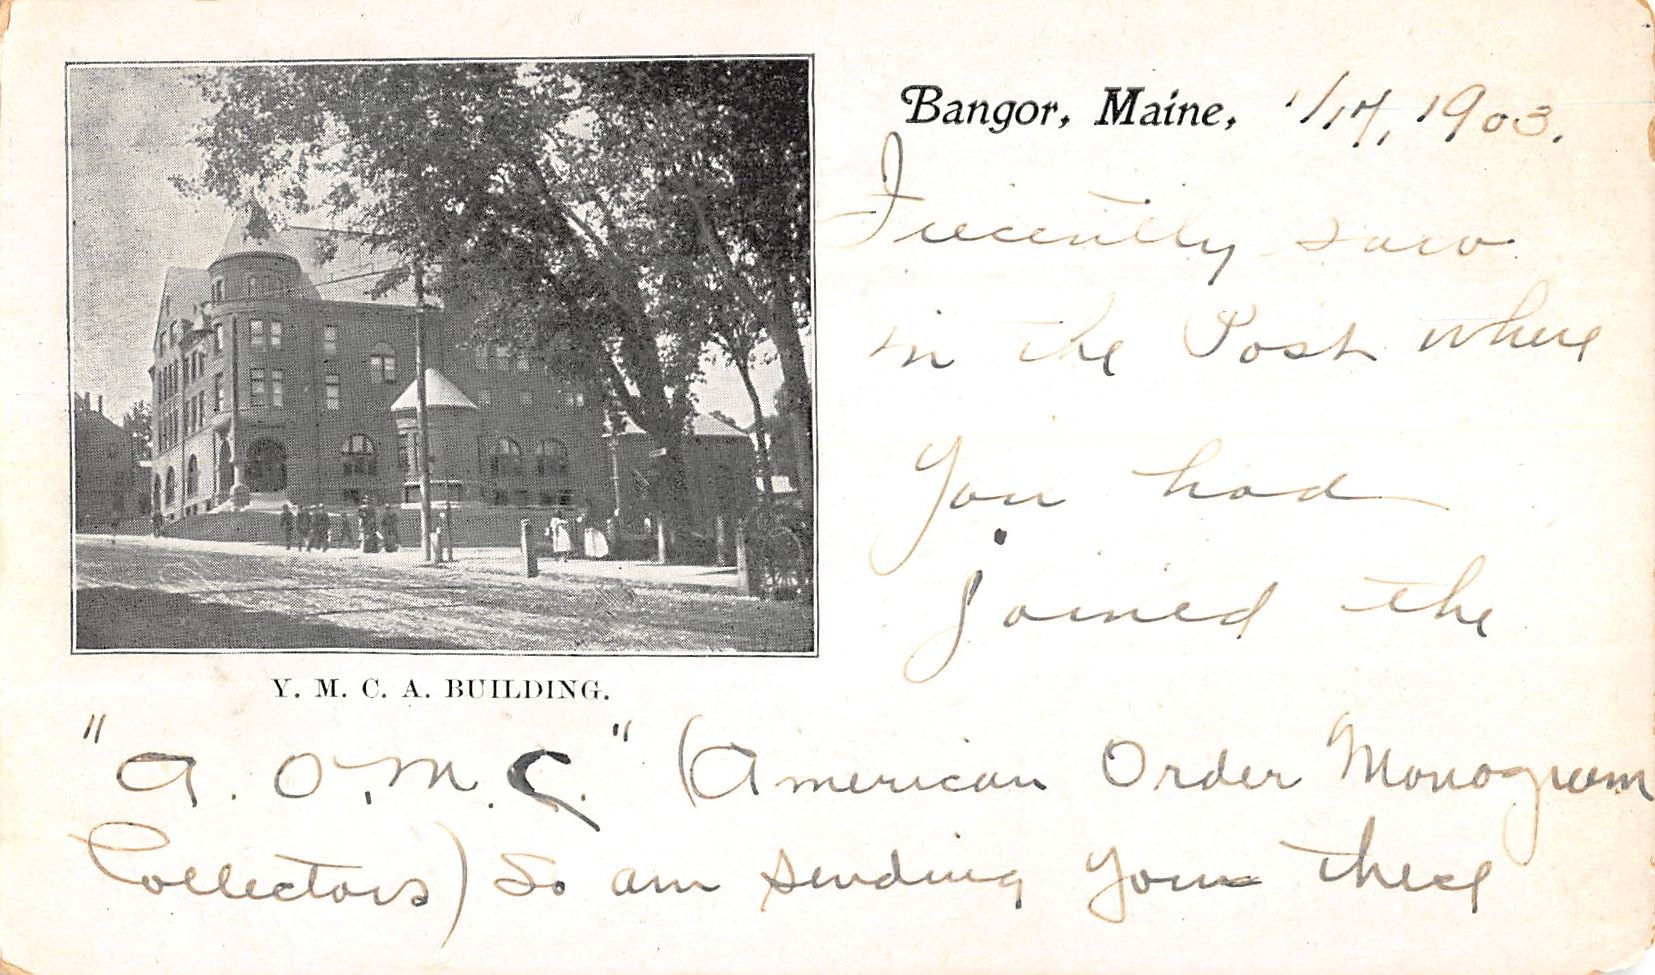 Bangor, Maine, 1/17, 1903.
I recently saw
in the Post where
you had
joined the
Y. M. C. A. BUILDING.
"A. O. M. C." (American Order Monogram
Collectors) So am sending you these